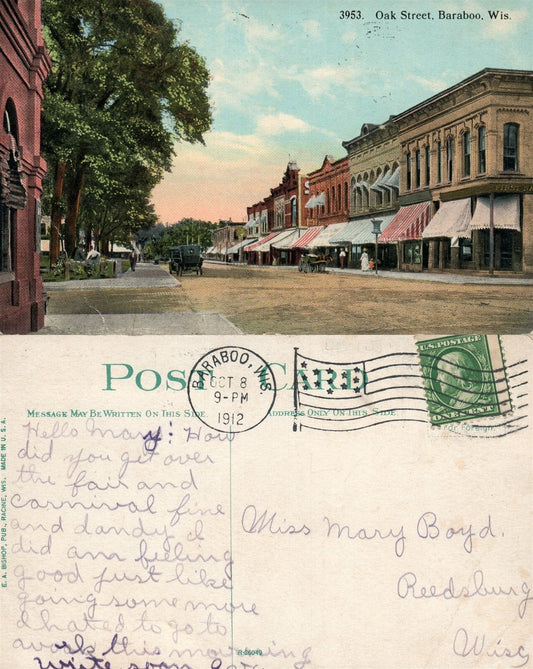 3953. Oak Street, Baraboo, Wis.
POST CARD
BARABOO, WIS.
OCT 8
9-PM
1912
U.S. POSTAGE
ONE CENT
MESSAGE MAY BE WRITTEN ON THIS SIDE.
ADDRESS ONLY ON THIS SIDE
For Foreign.
E. A. BISHOP, PUB., RACINE, WIS. MADE IN U. S. A.
Hello Mary! How
did you get over
the fair and
carnival fine
and dandy I
did am feeling
good just like
going some more
I hated to go to
work this morning
write soon
Miss Mary Boyd.
Reedsburg
Wisc
R-26049